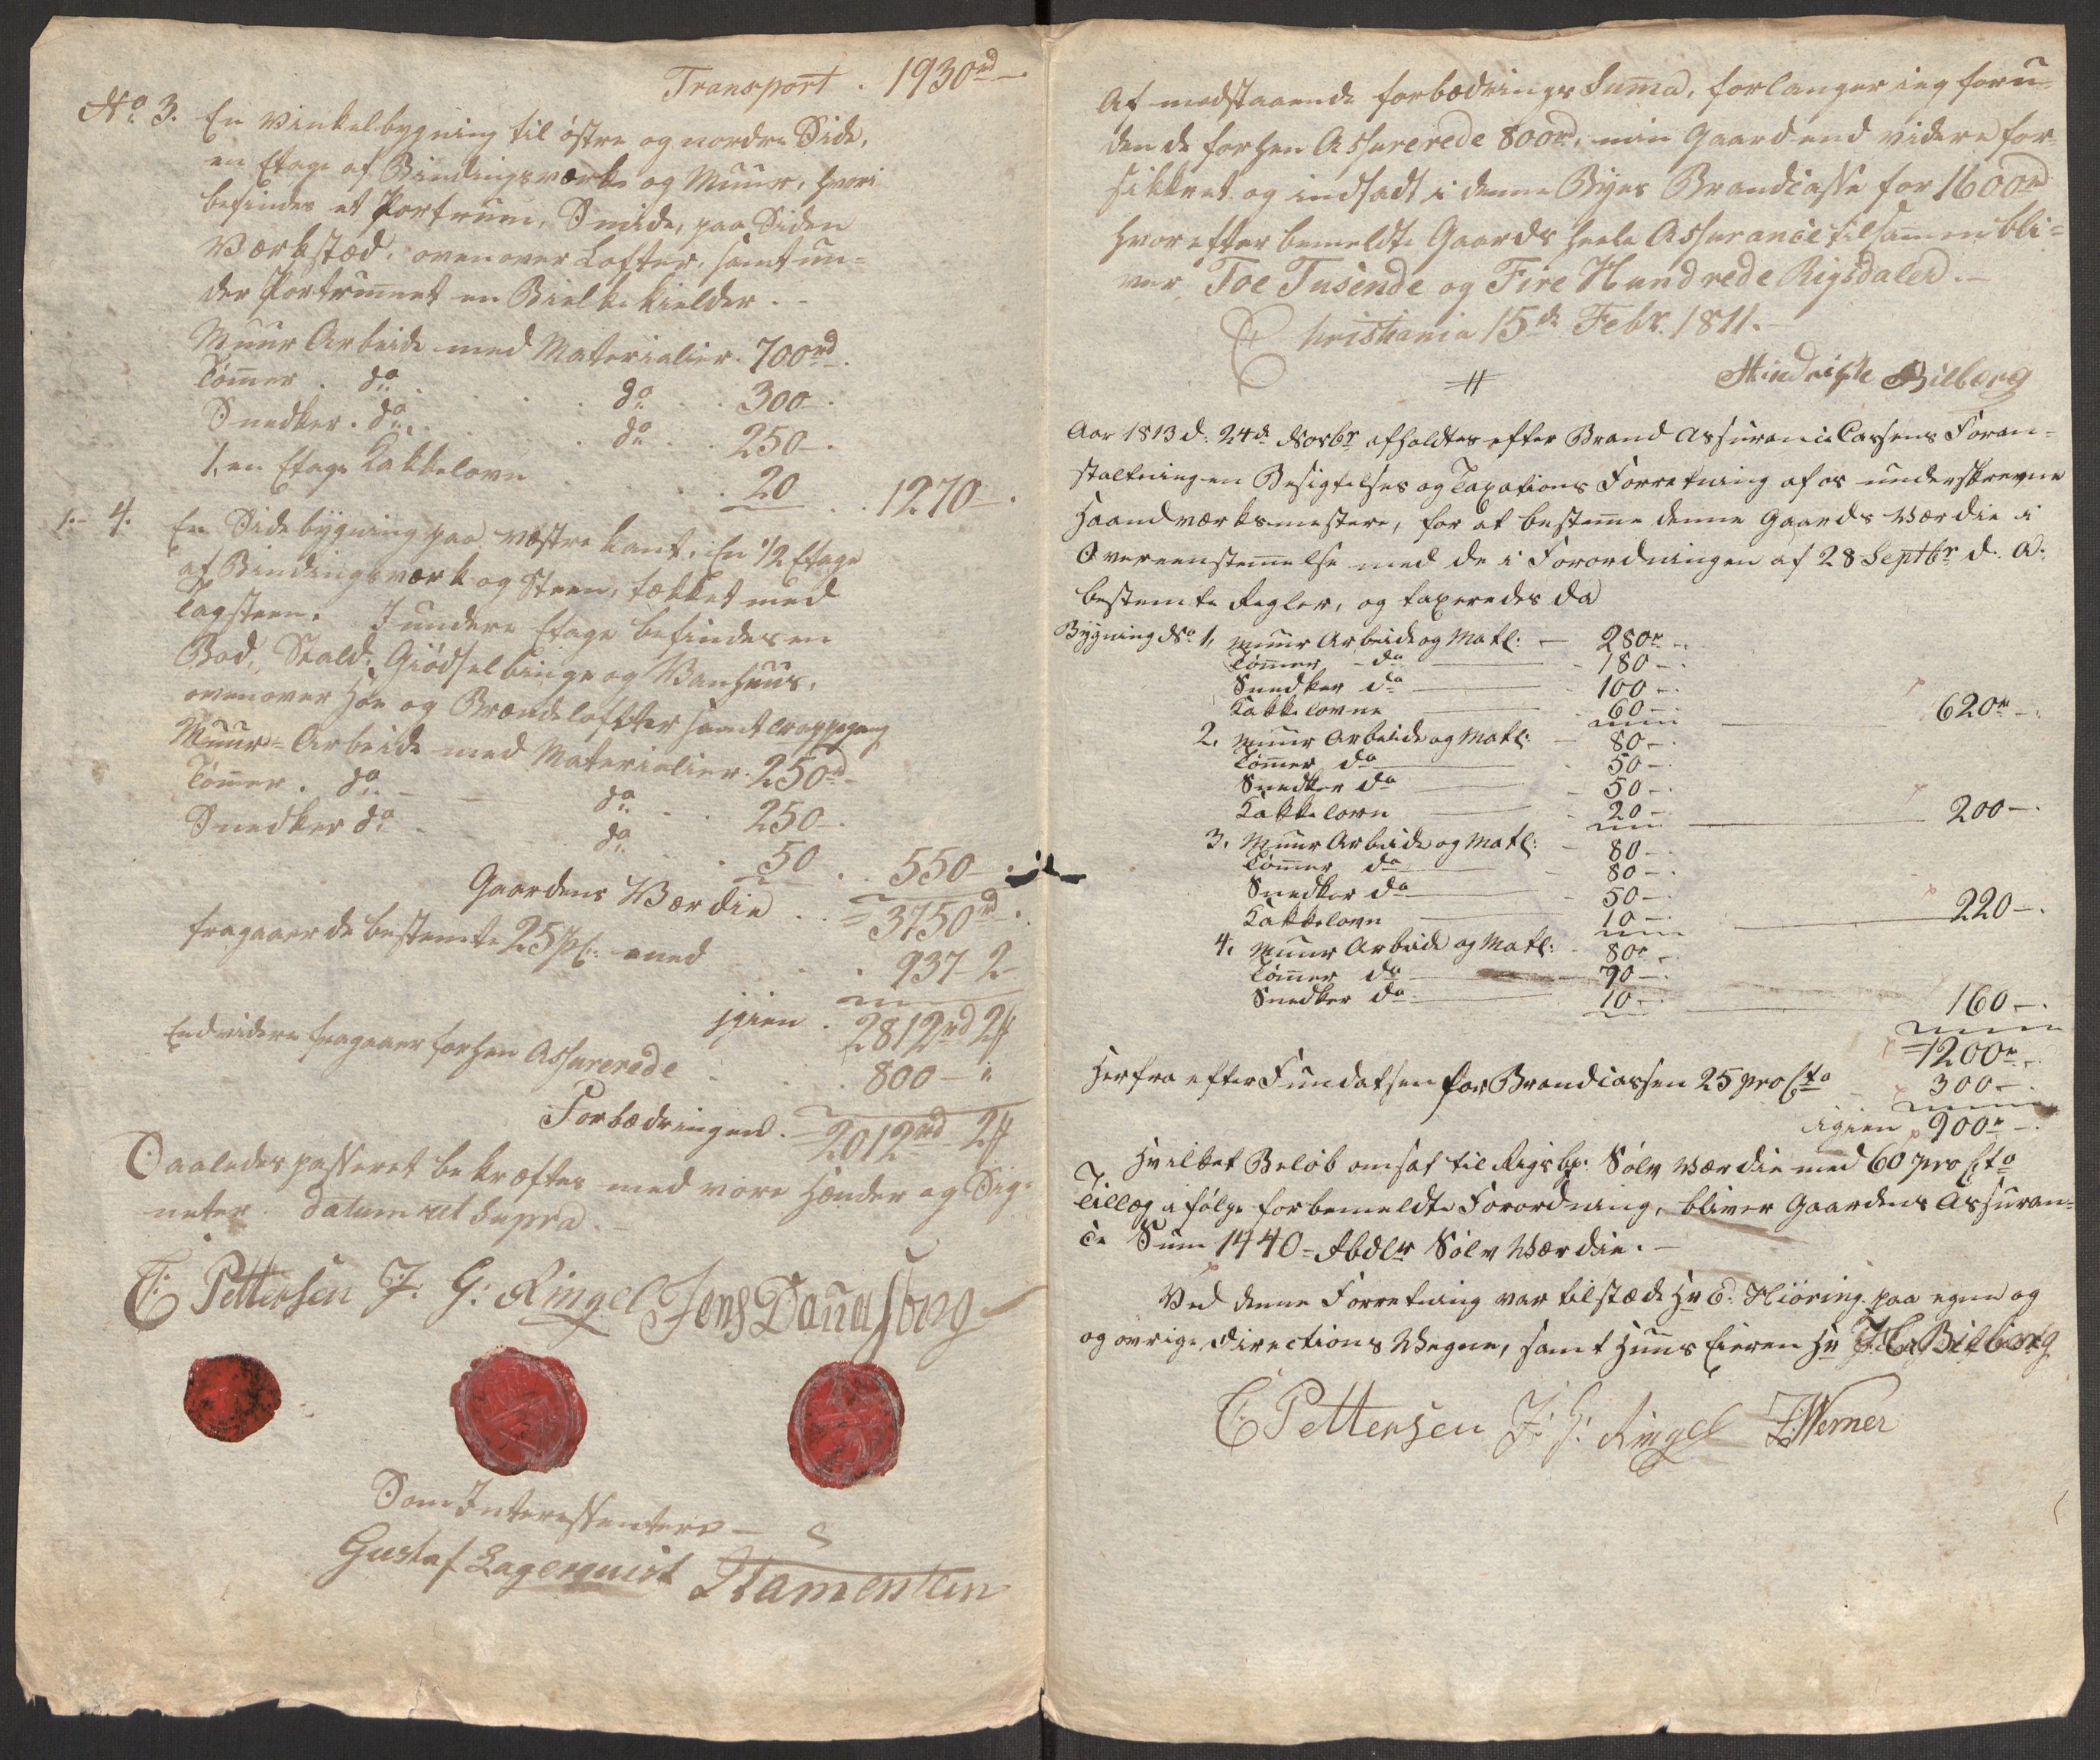 Transport . 1930rd –
No 3. En Vinkelbygning til östre og nordre Side,
en Etage af Bindingsværk og Muur, hvori
befindes et Portrum, Smide, paa Siden
Værkstæd, ovenover Lofter, samt un=
der Portrummet en Bielke Kielder. -
Muur Arbeide med Materialier. 700rd.
Tömmer . do . . . do . . 300 - .
Snedker . do . . . do . . 250 - .
1, en Etage Kakkelovn . . . 20 . . 1270 - .
1. - 4. En Sidebygning paa vestre kant, En 1/2 Etage
af Bindingsværk og Steen, tækket med
Tagsteen. I undere Etage befindes en
Bod, Stald, Giödselbinge og Vanhuus,
ovenover Höe og Brændelofter samt
Muur= Arbeide med Materialier. 250rd -
Tömmer . do - - do . . 250 - .
Snedker do . - do . . 50 . . 550 - .
Gaardens Værdie . . = 3750rd .
fragaaer de bestemte 25 pC: med . . 937 - 2 -
igien . 2812rd 2ß
Endvidere fragaaer forhen Assurerede . . . 800 - "
Forbedringen . = 2012rd 2ß
Saaledes passeret bekræftes med vore Hænder og Sig=
neter. Datum ut Supra. -
C: Pettersen J: G: Ringel Jens Dannesborg
Som Interessentere -
Gustaf Lagerquist Stamenstein
Af modstaaende forbedrings Suma, forlanger ieg foru=
den de forhen Assurerede 800rd, min Gaard end videre for=
sikkret og indsadt i denne Byes Brandcasse for 1600rd
hvorefter bemeldte Gaards heele Assurance tilsammen bli=
ver Toe Tusende og Fire Hundrede Rigsdaler. -
Christiania 15de Febr. 1811. -
Hindrich Bilberg
#
Aar 1813 d: 24de Novbr afholdtes efter Brand Assurance Cassens Foran=
staltning en Besigtelses og Taxations Forretning af os underskrevne
Haandværksmestere, for at bestemme denne Gaards Værdie i
Overeenstemmelse med de i Forordningen af 28 Septbr d. A:
bestemte Regler, og taxeredes da
Bygning No 1, Muur Arbeide og Matl: - 280r -
Tömmer - do - 180 - .
Snedker do - 100 - .
Kakkelovne - 60 - . 620r - .
2, Muur Arbeide og Matl: - 80 - .
Tömmer do - 50 - .
Snedker do - 50 - .
Kakkelovn - 20 - . 200 - .
3. Muur Arbeide og Matl: - 80 - .
Tömmer do - 80 - .
Snedker do - 50 - .
Kakkelovn - 10 - . 220 - .
4, Muur Arbeide og Matl: - 80r -
Tömmer do - 70 - .
Snedker do - 10 - . 160 - .
= 1200r -
Herfra efter Fundatsen for Brandcassen 25 pro Cto 300 - .
igien 900r - .
Hvilket Belöb omsat til Rigsbp. Sölv Værdie med 60 pro Cto
Tillæg i fölge forbemeldte Forordning, bliver Gaardens Assuran=
ce Sum 1440 - Rbdlr Sölv Værdie. -
Ved denne Forretning var tilstæde Hr C. Hiöring paa egne og
og övrige Directions Vegne, samt Huus Eieren Hr H. Bilberg
C: Pettersen J: G: Ringel J: Werner